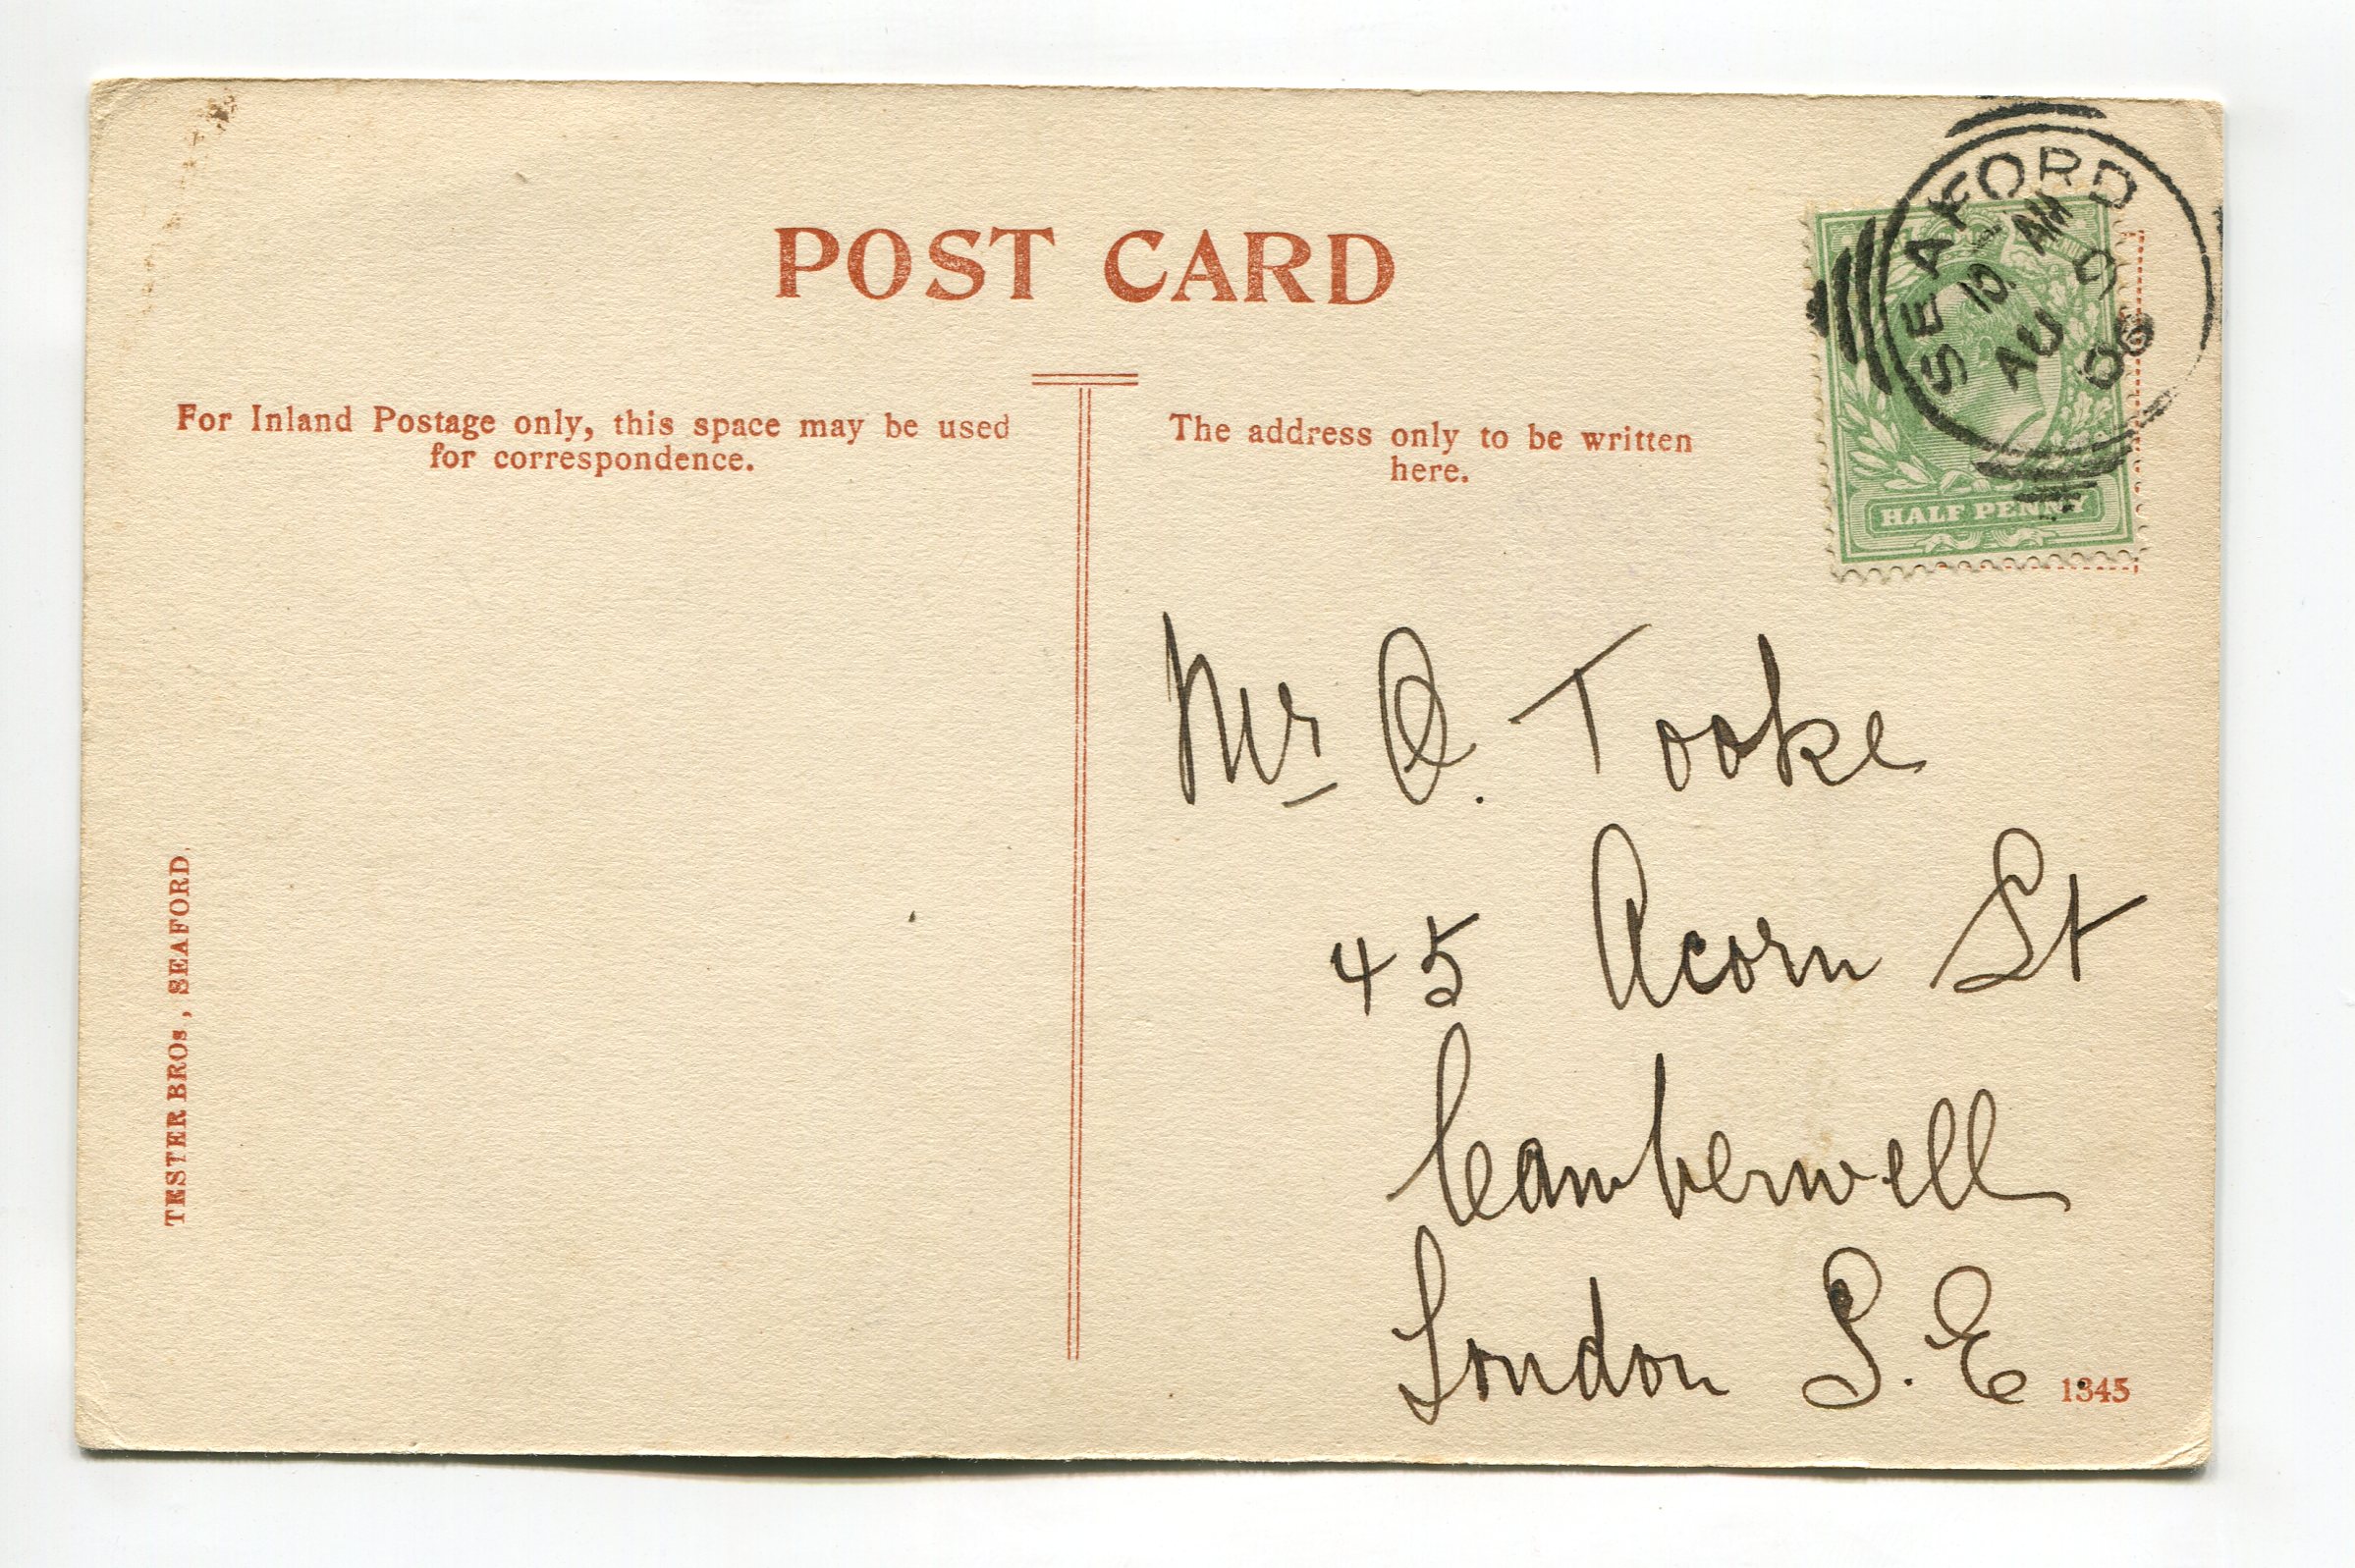 POST CARD
For Inland Postage only, this space may be used
for correspondence.
The address only to be written
here.
SEAFORD
10 AM
AU 9
06
HALF PENNY
Mr O. Tooke
45 Acorn St
Camberwell
London S.E.
TESTER BROs, SEAFORD.
1345